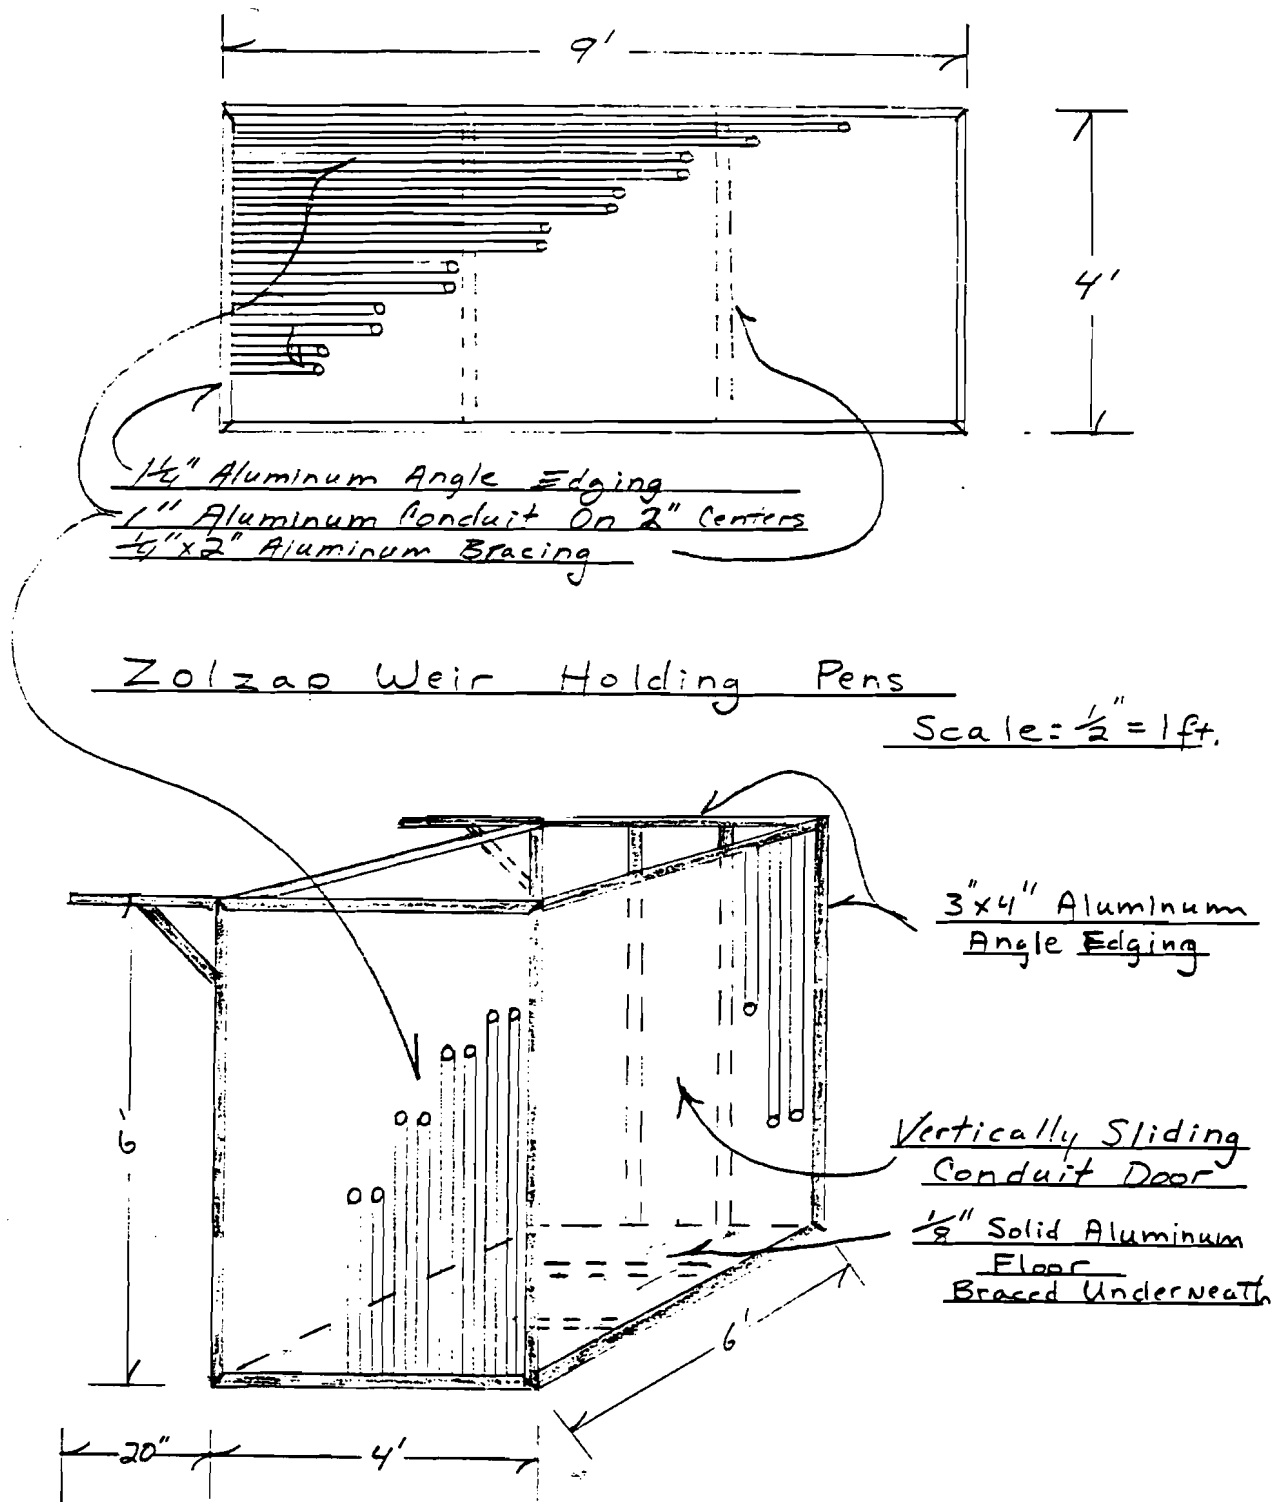 9'
4'
1¼" Aluminum Angle Edging
1" Aluminum Conduit On 2" Centers
¼"x2" Aluminum Bracing
Zolzap Weir Holding Pens
Scale: ½" = 1ft.
3"x4" Aluminum
Angle Edging
6'
Vertically Sliding
Conduit Door
⅛" Solid Aluminum
Floor
Braced Underneath
6'
20"
4'